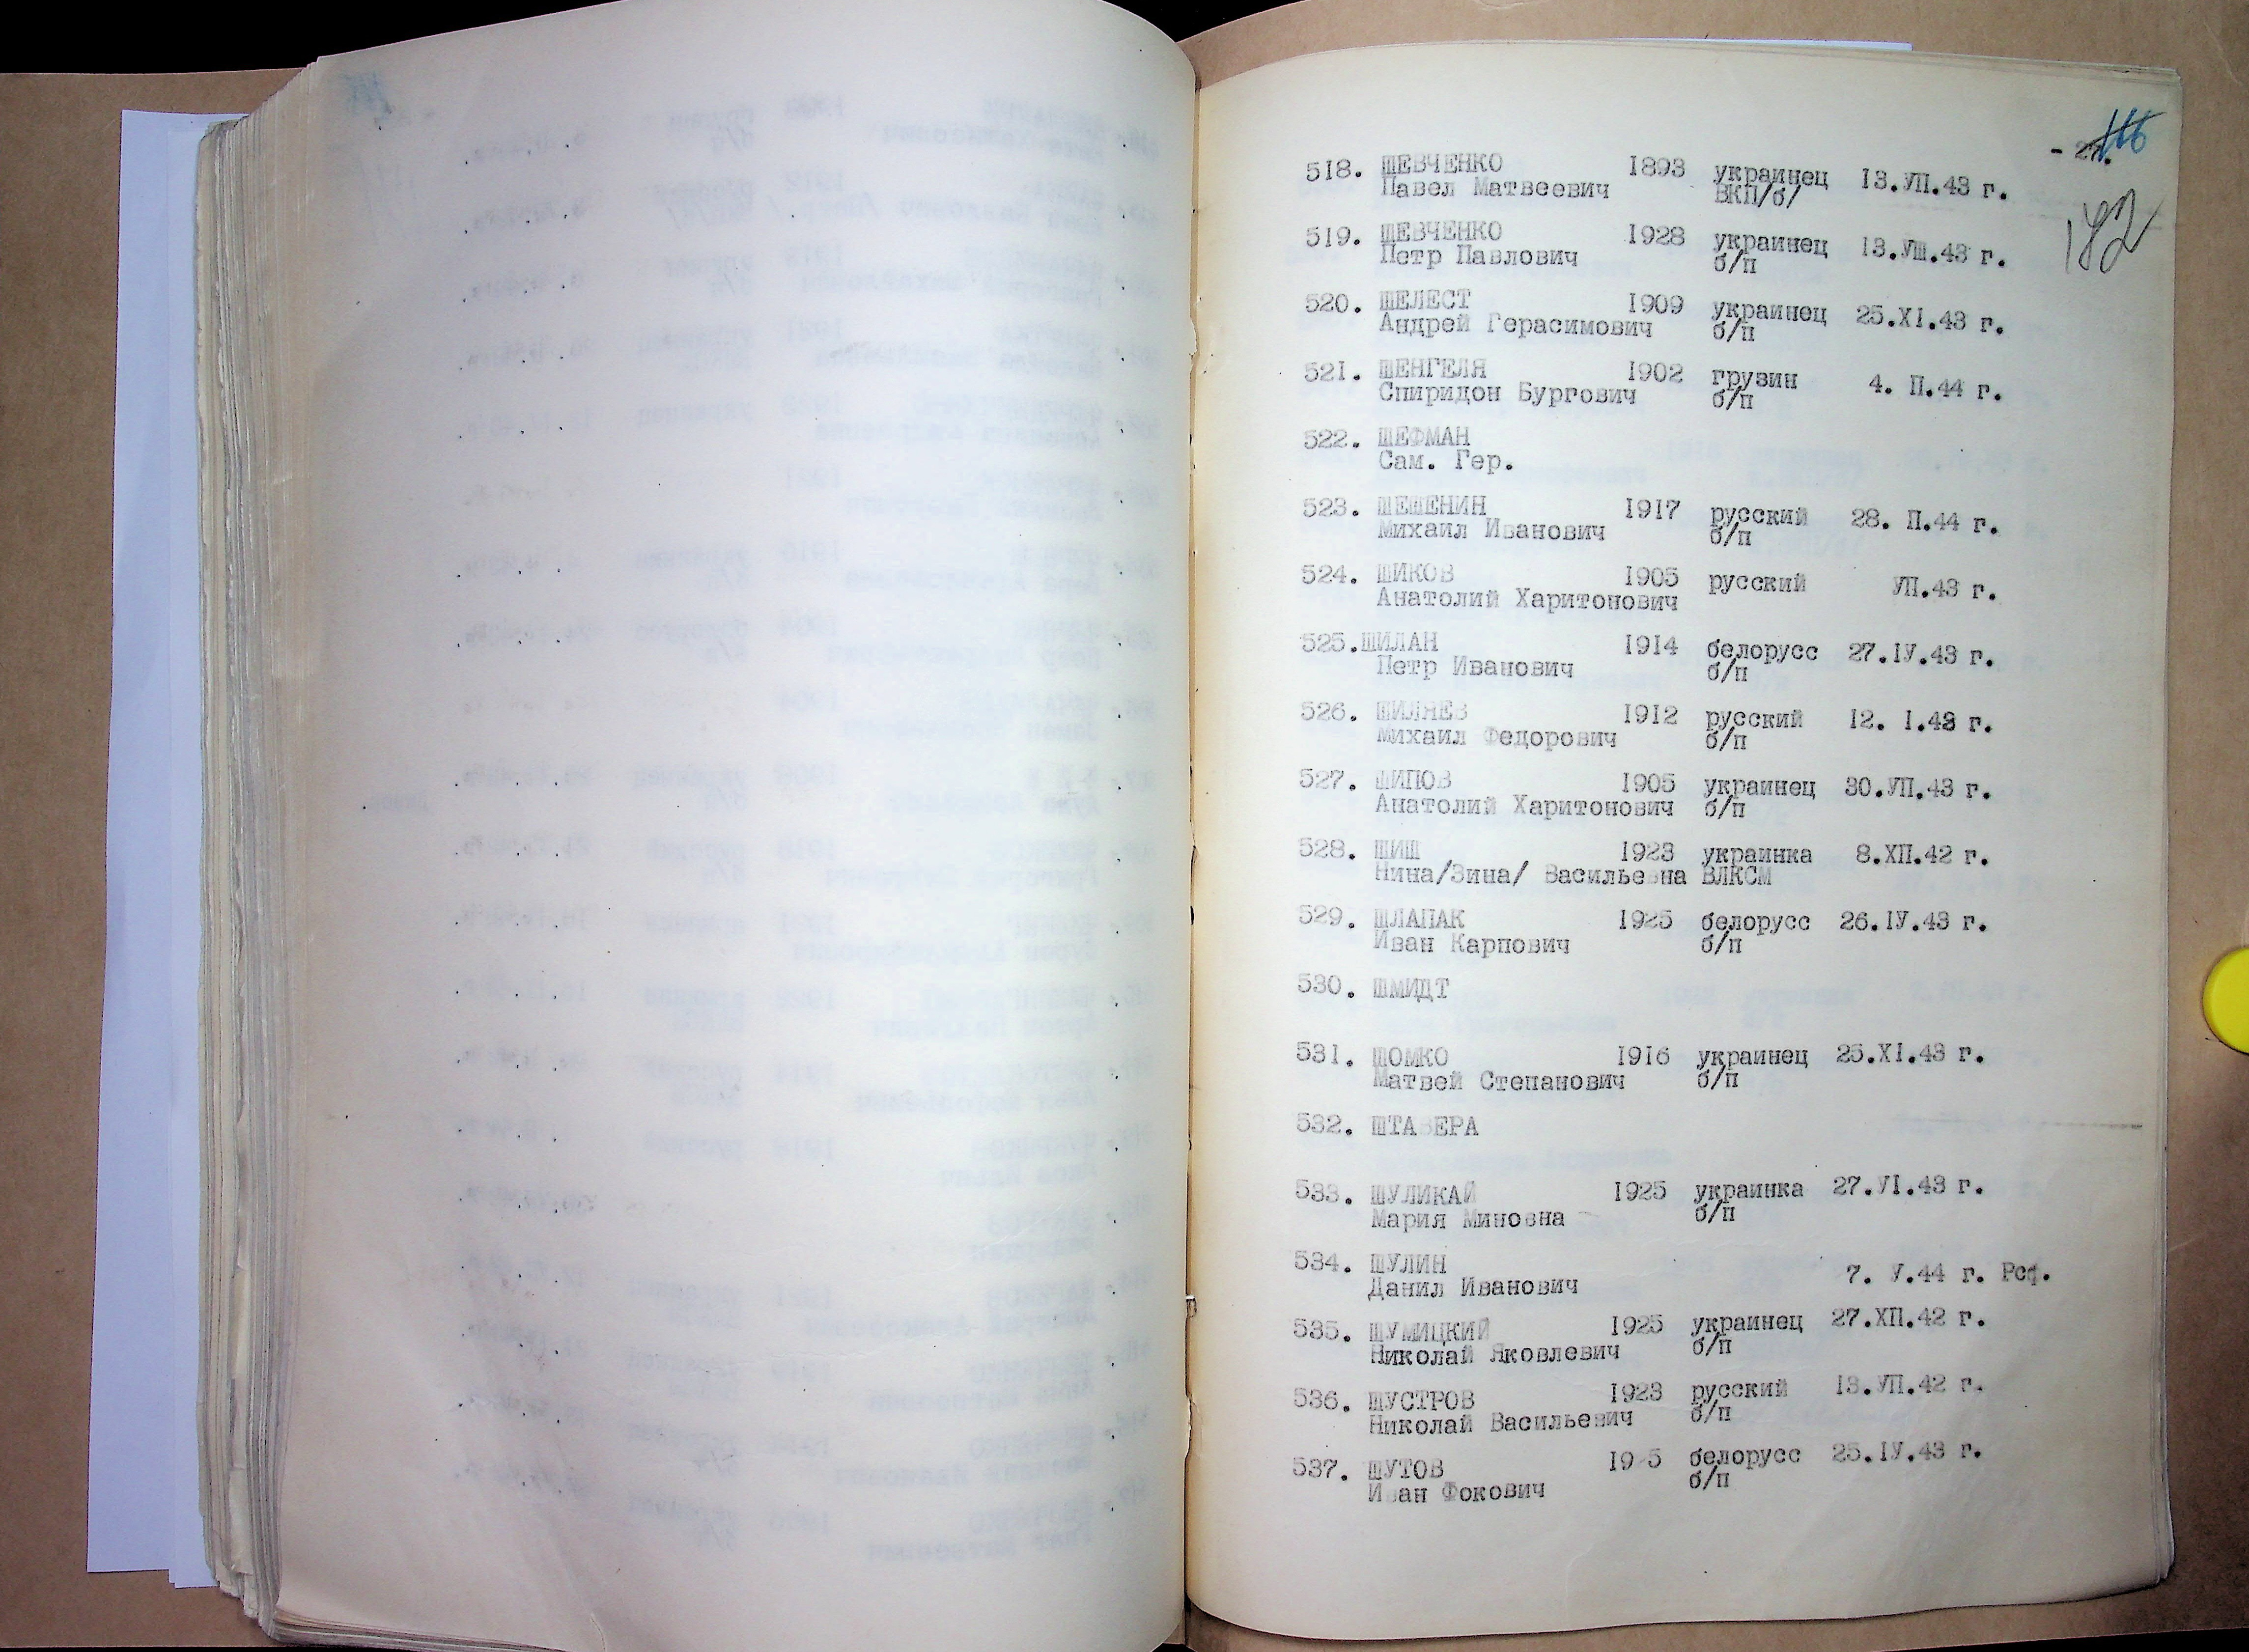 166
182
518. ШЕВЧЕНКО 1893 украинец 13.УП.43 г.
Павел Матвеевич ВКП/б/
519. ШЕВЧЕНКО 1928 украинец 13.УШ.43 г.
Петр Павлович б/п
520. ШЕЛЕСТ 1909 украинец 25.XI.43 г.
Андрей Герасимович б/п
521. ШЕНГЕЛЯ 1902 грузин 4. П.44 г.
Спиридон Бургович б/п
522. ШЕФМАН
Сам. Гер.
523. ШЕШЕНИН 1917 русский 28. П.44 г.
Михаил Иванович б/п
524. ШИКОВ 1905 русский УП.43 г.
Анатолий Харитонович
525.ШИЛАН 1914 белорусс 27.IУ.43 г.
Петр Иванович б/п
526. ШИЛЯЕВ 1912 русский 12. I.43 г.
Михаил Федорович б/п
527. ШИПОВ 1905 украинец 30.УП.43 г.
Анатолий Харитонович б/п
528. ШИШ 1923 украинка 8.ХП.42 г.
Нина/Зина/ Васильевна ВЛКСМ
529. ШЛАПАК 1925 белорусс 26.IУ.43 г.
Иван Карпович б/п
530. ШМИДТ
531. ШОМКО 1916 украинец 25.XI.43 г.
Матвей Степанович б/п
532. ШТАВЕРА
533. ШУЛИКАЙ 1925 украинка 27.УI.43 г.
Мария Миновна б/п
534. ШУЛИН
Данил Иванович 7. У.44 г. Рсф.
535. ШУМИЦКИЙ 1925 украинец 27.ХП.42 г.
Николай Яковлевич б/п
536. ШУСТРОВ 1923 русский 13.УП.42 г.
Николай Васильевич б/п
537. ШУТОВ белорусс 25.IУ.43 г.
Иван Фокович б/п